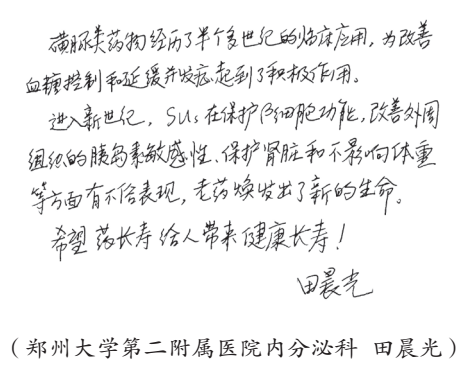 磺脲类药物经历了半个多世纪的临床应用,为改善
血糖控制和延缓并发症起到了积极作用。
进入新世纪,SUs在保护β细胞功能,改善外周
组织的胰岛素敏感性、保护肾脏和不影响体重
等方面有不俗表现,老药焕发出了新的生命。
希望药长寿给人带来健康长寿!
田晨光
(郑州大学第二附属医院内分泌科 田晨光)